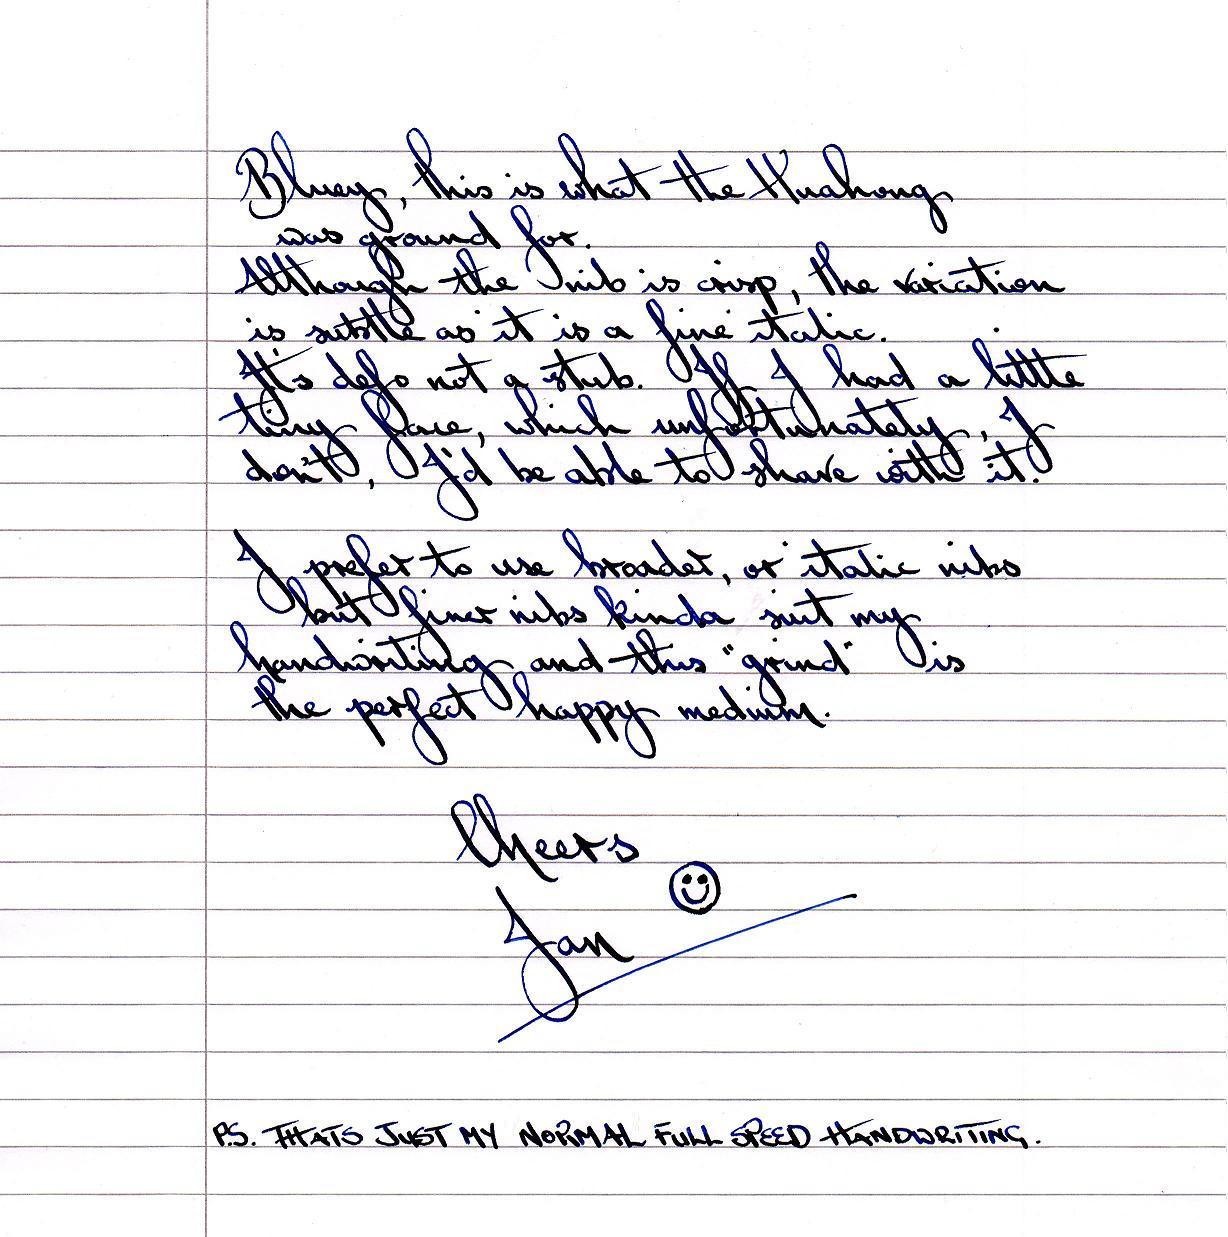 Bluey, this is what the Huahong
was ground for.
Although the nib is crisp, the variation
is subtle as it is a fine italic.
It's defo not a stub. If I had a little
tiny face, which unfortunately, I
don't, I'd be able to shave with it.
I prefer to use broader, or italic nibs
but finer nibs kinda suit my
handwriting and this "grind" is
the perfect happy medium.
Cheers
Ian
P.S. THATS JUST MY NORMAL FULL SPEED HANDWRITING.